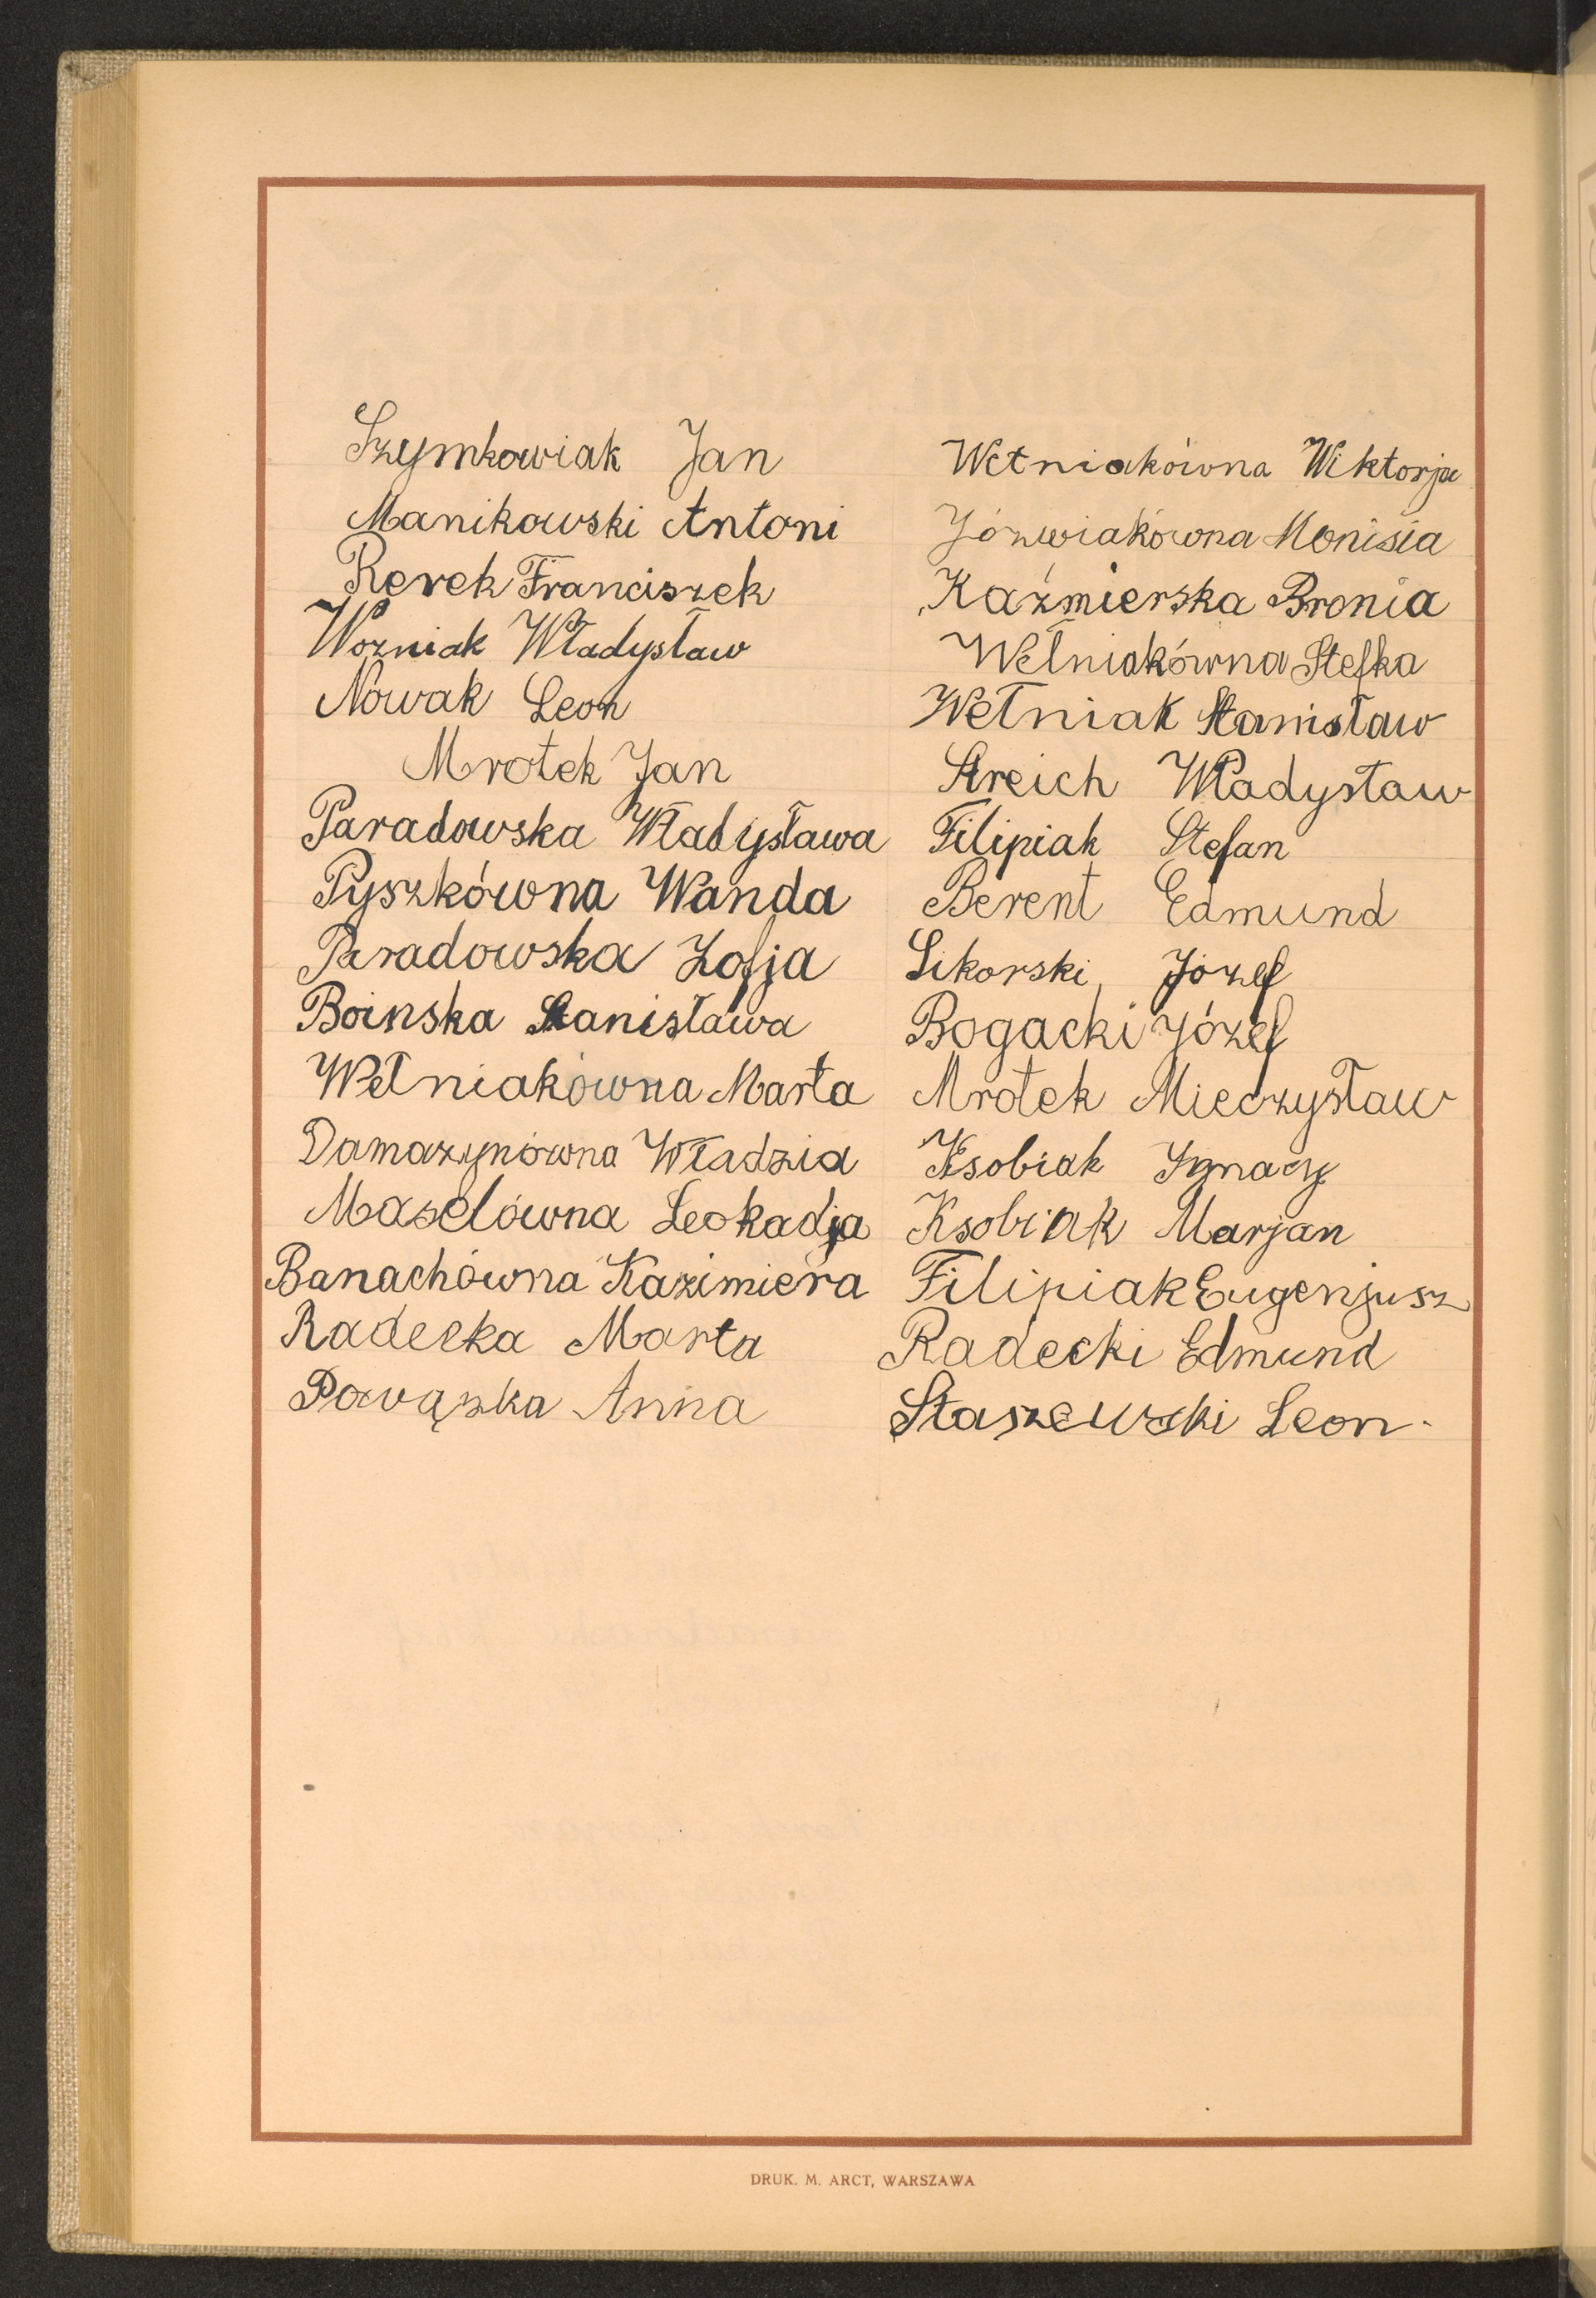 Szymkowiak Jan
Manikowski Antoni
Rerek Franciszek
Wozniak Władysław
Nowak Leon
Mrotek Jan
Paradowska Władysława
Pyszkówna Wanda
Paradowska Zofja
Boinska Stanisława
Wełniakówna Marta
Damazynówna Władzia
Maselówna Leokadja
Banachówna Kazimiera
Radecka Marta
Powązka Anna
Wełniakówna Wiktorja
Józwiakówna Monisia
Kaźmierska Bronia
Wełniakówna Stefka
Wełniak Stanisław
Streich Władysław
Filipiak Stefan
Berent Edmund
Sikorski, Józef
Bogacki Józef
Mrotek Mieczysław
Ksobiak Ignacy
Ksobiak Marjan
Filipiak Eugenjusz
Radecki Edmund
Staszewski Leon.
DRUK. M. ARCT, WARSZAWA